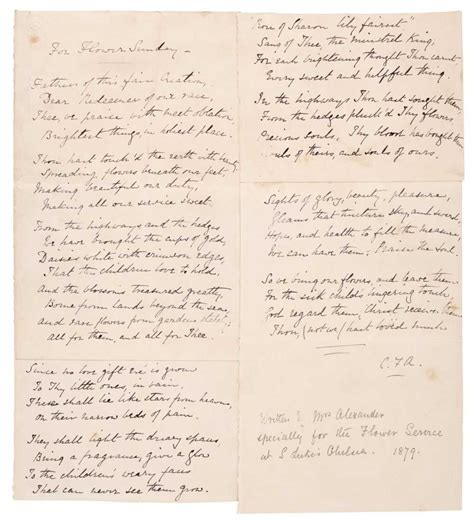 For Flower Sunday —
Father of this fair Creation,
Dear Redeemer of our race,
Thee, we praise with meet oblation,
Brightest things, in holiest place.
Thou hast touch'd the earth with beauty
Spreading flowers beneath our feet -
Making beautiful our duty,
Making all our service sweet.
From the highways and the hedges
We have brought the cups of gold,
Daisies white with crimson edges,
That the children love to hold,
And the blossoms treasured greatly,
Borne from lands beyond the sea,
And rare flowers from gardens stately
All for them, and all for Thee.
Since no love gift e'er is given
To Thy little ones, in vain.
These shall lie like stars from heaven,
On their narrow beds of pain.
They shall light the dreary spaces
Being a fragrance, give a glow
To the children's weary faces
That can never see them grow.
"Rose of Sharon lily fairest"
Sang of Thee, the Minstrel King,
For each brightening thought Thou carest
Every sweet and helpful thing.
In the highways Thou hast sought them
From the hedges pluck'd Thy flowers
Precious souls, Thy blood has bought them
Souls of theirs, and souls of ours.
Sights of glory, beauty, pleasure,
Gleams that nurture sky and sward,
Hope, and health to fill the measure,
We can have them; Praise the
So we bring our flowers, and leave them
For the sick child's lingering touch,
God regard them, Christ receive them
Thou, (not we) hast loved much.
C.F.A.
Written by Mrs Alexander
specially for the Flower Service
at S. Luke's Chelsea. 1879.